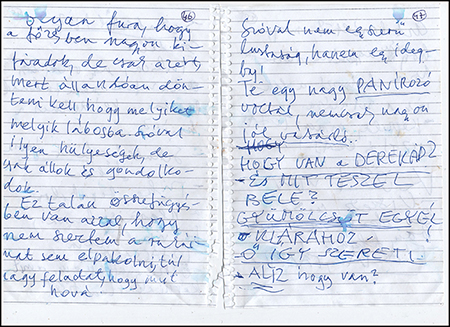 46
olyan fura, hogy
a főzésben nagyon ki-
fáradok, de csak azért,
mert állandóan dön-
teni kell hogy melyiket
melyik lábosba. Szóval
ilyen hülyeségek, de
csak állok és gondolko-
dok.
Ez talán összefüggés-
ben van azzal, hogy
nem szerettem a ruhái-
mat sem elpakolni, túl
nagy feladat, hogy mit
hova!
47
Szóval nem egyszerű
lustaság, hanem egy ideg-
Te egy nagy PANÍROZÓ
voltál, nemcsak nagyon
jól vásárló.
HOGY VAN a DEREKAD?
- ÉS MIT TESZEL
BELE?
GYÜMÖLCSÖT EGYÉL
- KLÁRÁHOZ -
Ő ÍGY SZERETI.
- ALIZ hogy van?